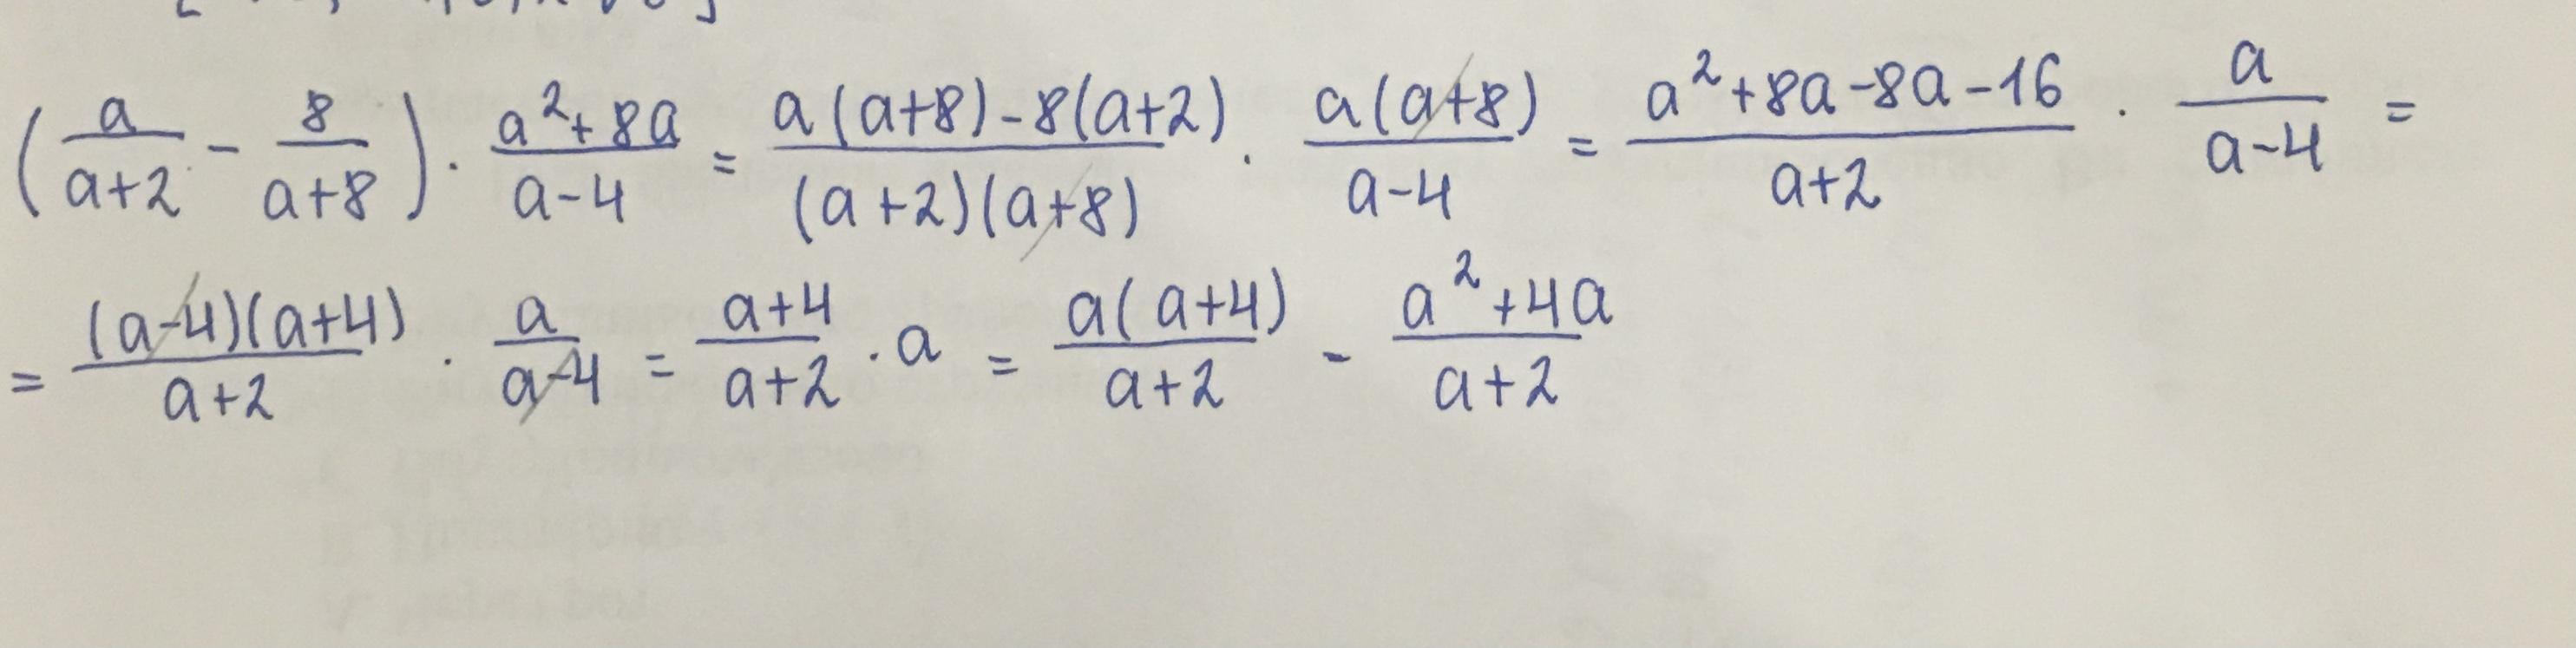 (a/(a+2) - 8/(a+8)) · (a²+8a)/(a-4) = (a(a+8)-8(a+2))/((a+2)(a+8)) · (a(a+8))/(a-4) = (a²+8a-8a-16)/(a+2) · a/(a-4) =
= ((a-4)(a+4))/(a+2) · a/(a-4) = (a+4)/(a+2) · a = (a(a+4))/(a+2) - (a²+4a)/(a+2)